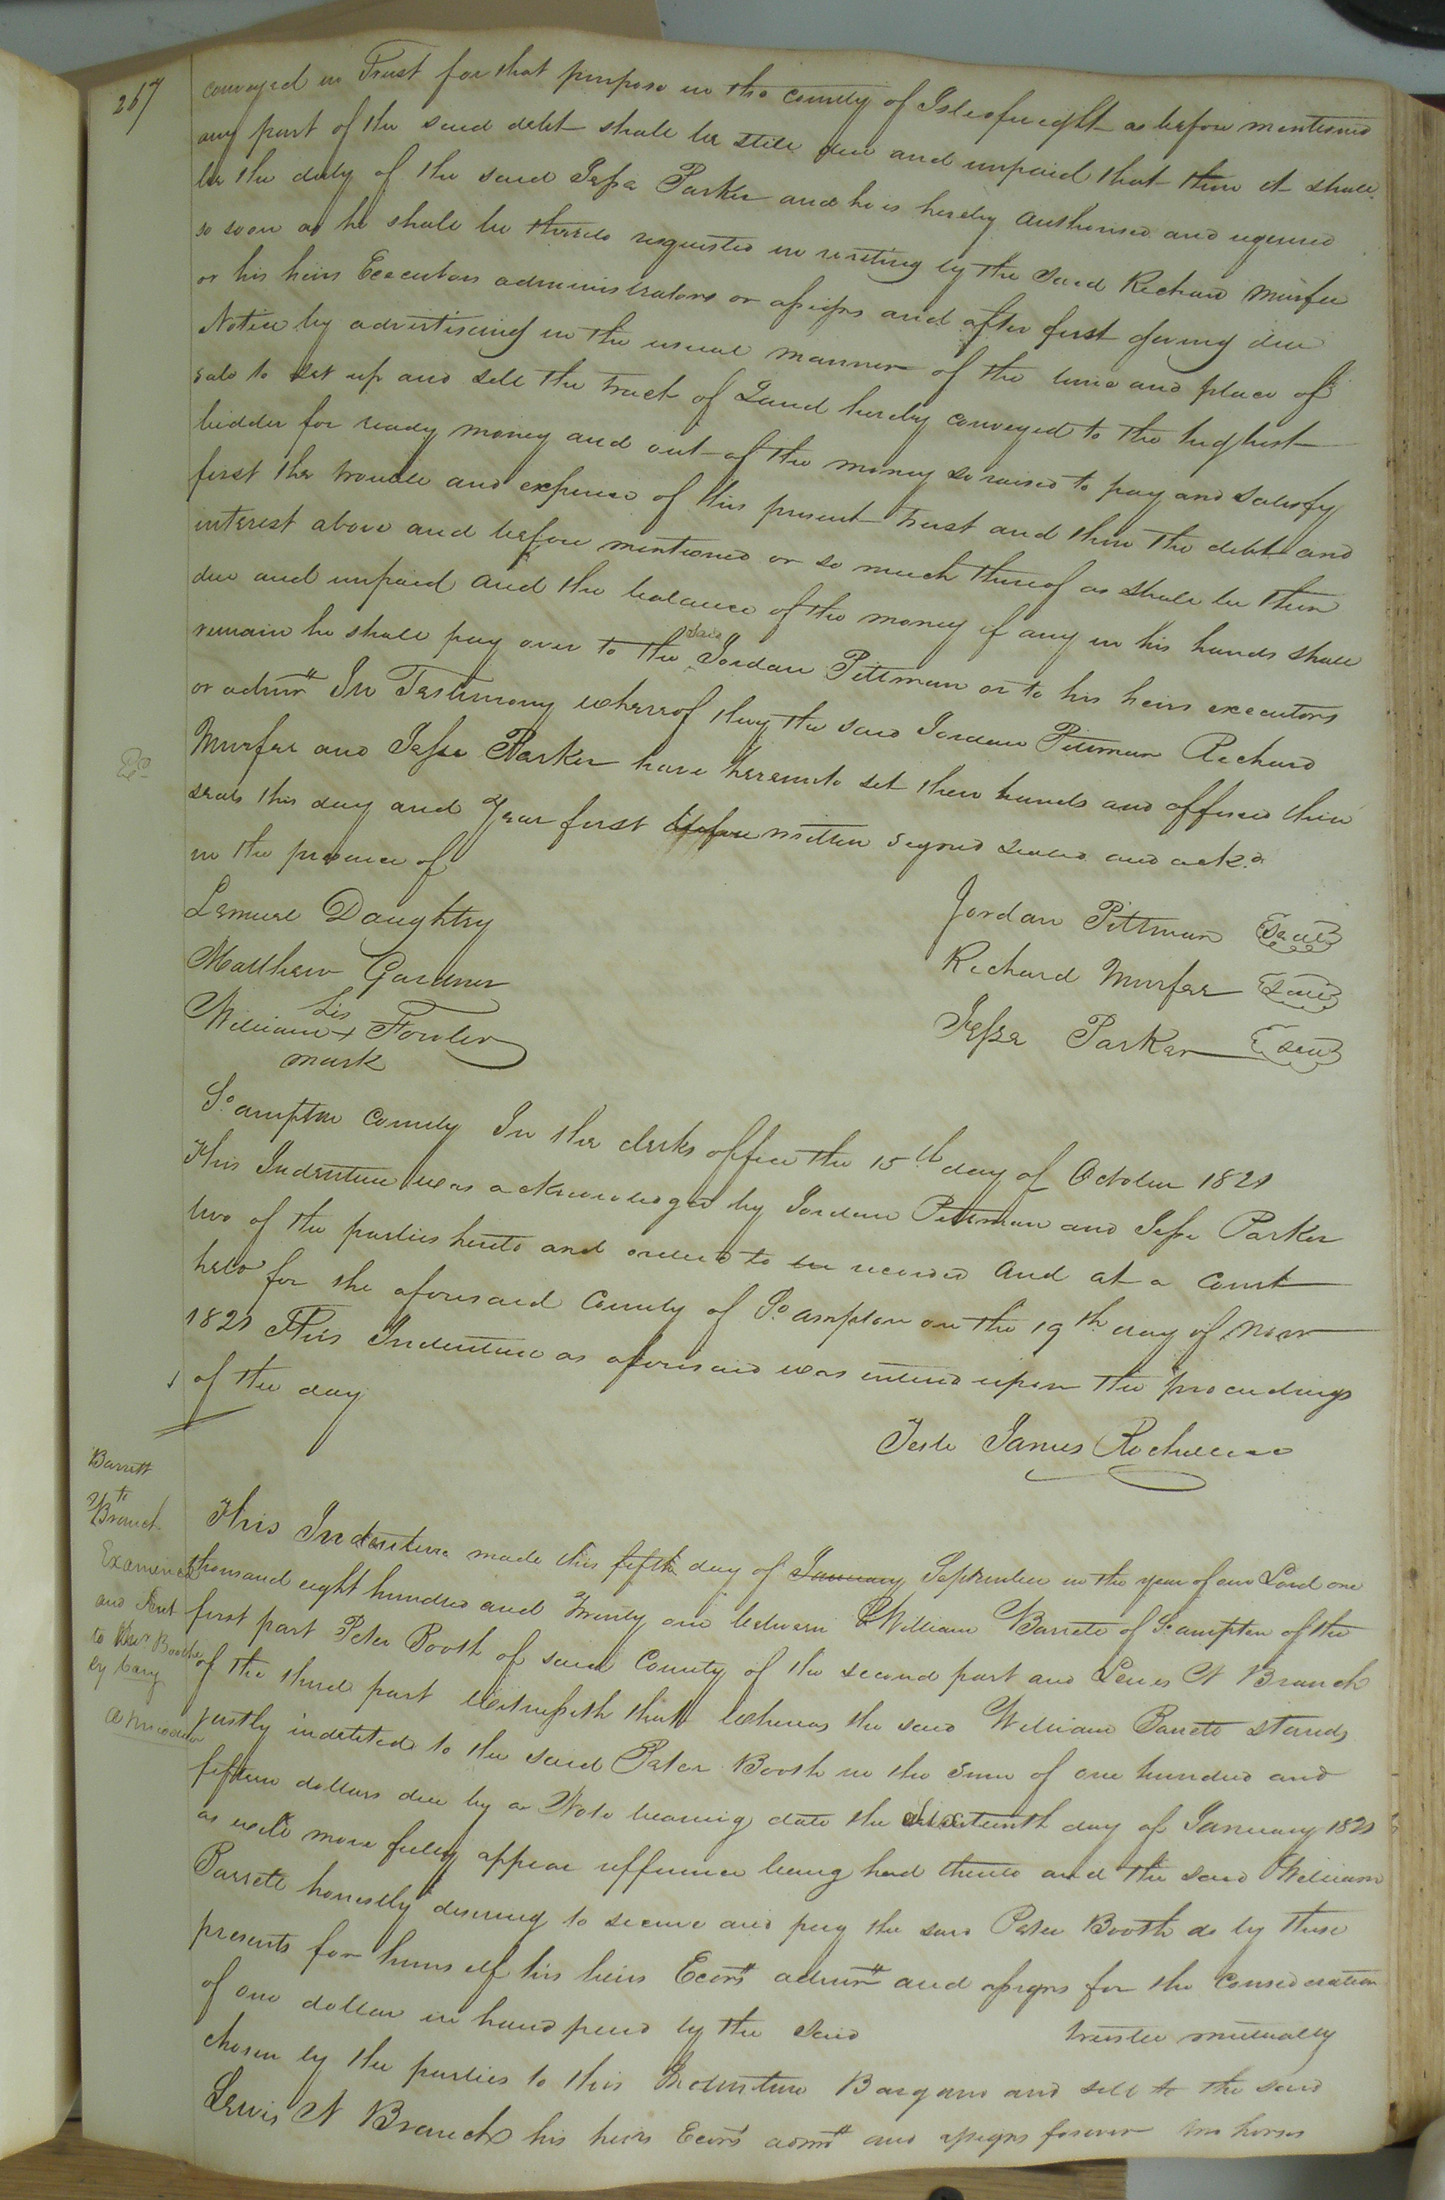 267
conveyed in Trust for that purpose in the county of Isleofwight as before mentioned
any part of the said debt shall be still due and unpaid that then it shall
be the duty of the said Jesse Parker and he is hereby authorised and required
so soon as he shall be thereto requested in writing by the said Richard Murfee
or his heirs Executors administrators or assigns and after first giving due
Notice by advertising in the usual manner of the time and place of
sale to set up and sell the tract of Land hereby conveyed to the highest
bidder for ready money and out of the money so raised to pay and satisfy
first the trouble and expense of this present trust and then the debt and
interest above and before mentioned or so much thereof as shall be then
due and unpaid and the balance of the money if any in his hands shall
remain he shall pay over to the said Jordan Pittman or to his heirs executors
or admrs In Testimony whereof they the said Jordan Pittman Richard
Murfee and Jesse Parker have hereunto set their hands and affixed their
seals this day and Year first before written signed sealed and ackd
in the presence of
Lemuel Daughtry
Jordan Pittman seal
Matthew Gardner
Richard Murfee seal
his
William + Fowler
mark
Jesse Parker seal
So ampton County In the clerks office the 15th day of October 1821
This Indenture was acknowledged by Jordan Pittman and Jesse Parker
two of the parties hereto and ordered to be recorded and at a Court
held for the aforesaid County of So ampton on the 19th day of Novr
1821 This Indenture as aforesaid was entered upon the proceedings
of the day
Teste James Rochelle
Barrett
to
Branch
Examined
and sent
to Booth
by Cary
This Indenture made this fifth day of January September in the year of our Lord one
thousand eight hundred and Twenty one between William Barrett of So ampton of the
first part Peter Booth of said County of the second part and Lewis N Branch
of the third part Witnesseth that Whereas the said William Barrett stands
justly indebted to the said Peter Booth in the sum of one hundred and
fifteen dollars due by a Note bearing date the sixteenth day of January 1821
as will more fully appear refference being had thereto and the said William
Barrett honestly desiring to secure and pay the said Peter Booth do by these
presents for himself his heirs Ecors admrs and assigns for the consideration
of one dollar in hand paid by the said trustee mutually
chosen by the parties to this Indenture Bargain and sell to the said
Lewis N Branch his heirs Ecors admrs and assigns forever two horses